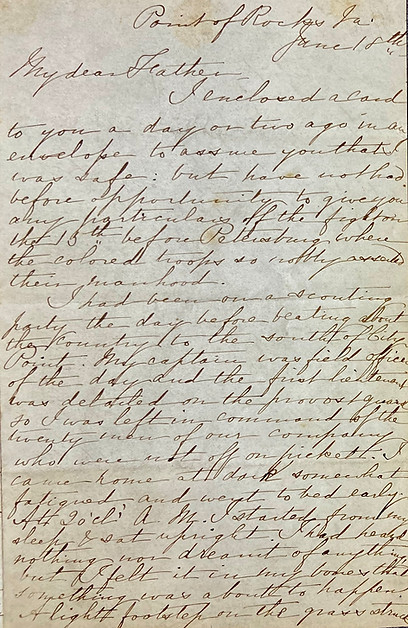 Point of Rocks Va:
June 18th
My dear Father
I enclosed a card
to you a day or two ago in an
envelope to assure you that I
was safe: but have not had
before opportunity to give you
any particulars of the fight on
the 15th before Petersburg where
the colored troops so nobly asserted
their manhood.
I had been on a scouting
party the day before beating about
the country to the south of City
Point. My captain was field officer
of the day and the first lieutenant
was detailed on the provost guard
so I was left in command of the
twenty men of our company
who were not off on pickett. I
came home at dark somewhat
fatigued and went to bed early.
At 2 o'cl' A. M. I started from my
sleep & sat upright. I had heard
nothing nor dreamt of anything
but I felt it in my bones that
something was about to happen.
A light footstep on the grass